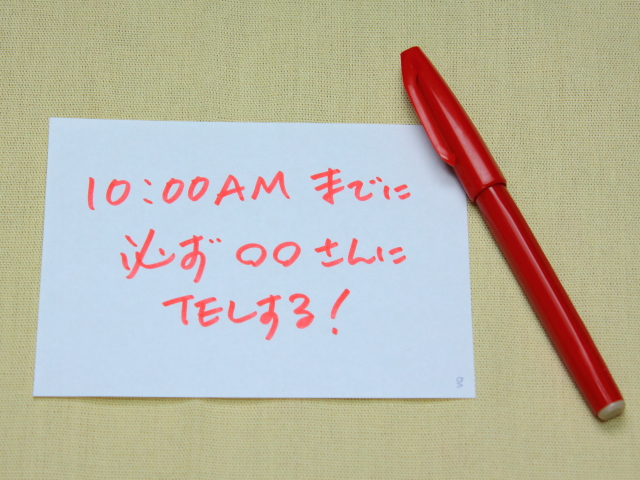 10:00AM までに
必ず○○さんに
TELする!